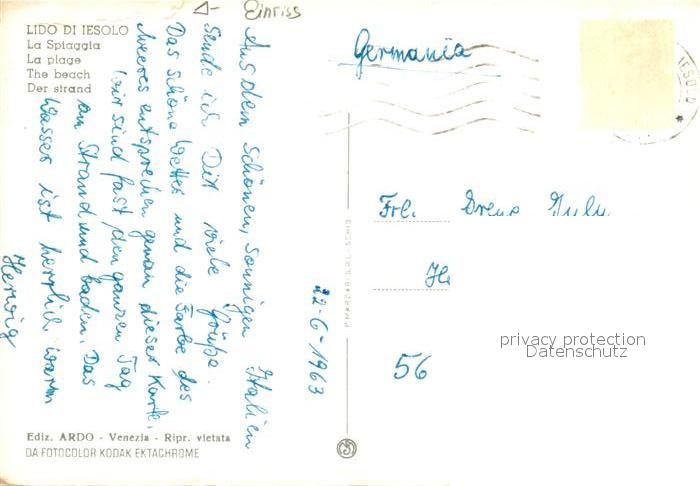 Einriss
LIDO DI IESOLO
La Spiaggia
La plage
The beach
Der strand
Aus dem schönen, sonnigen Italien
sende ich Dir viele Grüße.
Das schöne Wetter und die Farbe des
Meeres entsprechen genau dieser Karte.
Wir sind fast den ganzen Tag
am Strand und baden. Das
Wasser ist herrlich warm
Herwig
22-6-1963
Ediz. ARDO - Venezia - Ripr. vietata
DA FOTOCOLOR KODAK EKTACHROME
Germania
Frl.
56
privacy protection
Datenschutz